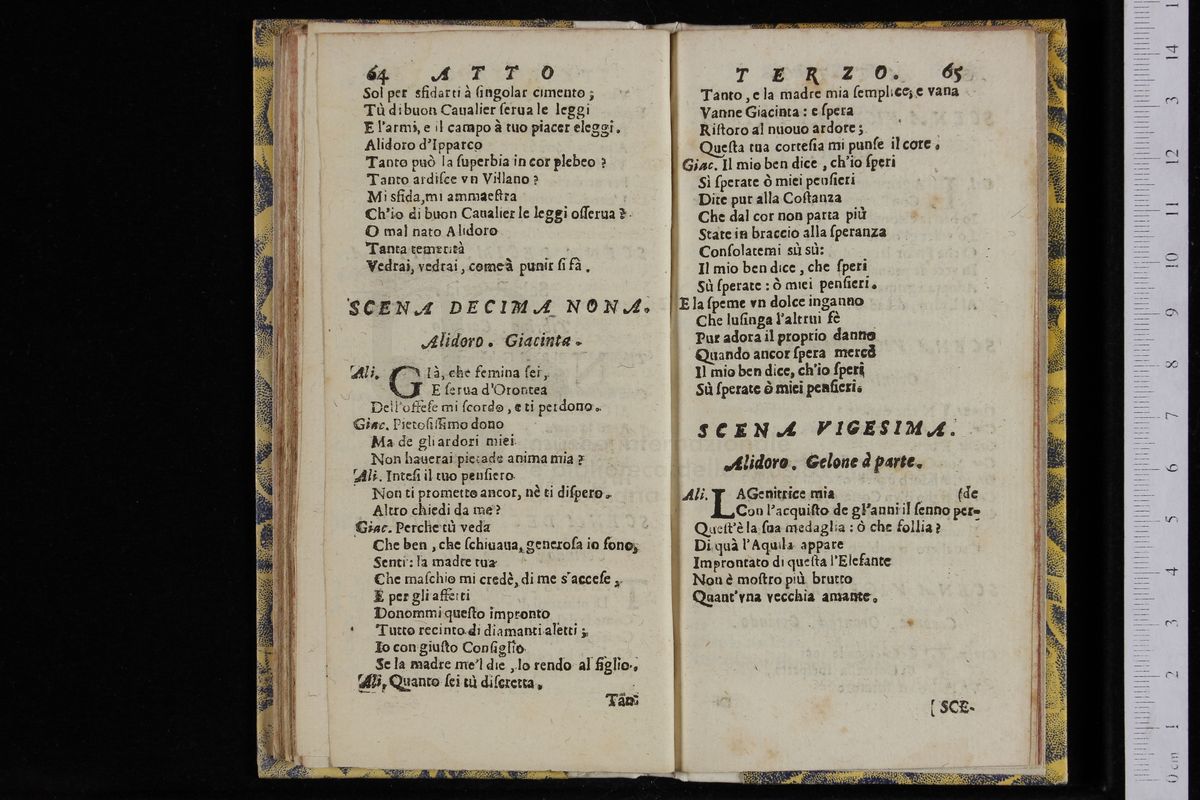 64 ATTO
Sol per sfidarti à ſingolar cimento ;
Tù di buon Caualier ſerua le leggi
E l'armi, e il campo à tuo piacer eleggi.
Alidoro d'Ipparco
Tanto può la ſuperbia in cor plebeo ?
Tanto ardiſce vn Villano ?
Mi sfida, mi ammaeſtra
Ch'io di buon Caualier le leggi oſſerua ?
O mal nato Alidoro
Tanta temerità
Vedrai, vedrai, come à punir ſi fà.
SCENA DECIMA NONA.
Alidoro. Giacinta.
Ali. Già, che femina ſei,
E ſerua d'Orontea
Dell'offeſe mi ſcordo, e ti perdono.
Giac. Pietoſiſſimo dono
Ma de gli ardori miei
Non hauerai pietade anima mia ?
Ali. Inteſi il tuo penſiero
Non ti prometto ancor, nè ti diſpero.
Altro chiedi da me ?
Giac. Perche tù veda
Che ben, che ſchiuaua, generoſa io ſono,
Senti : la madre tua
Che maſchio mi credè, di me s'acceſe,
E per gli affetti
Donommi queſto impronto
Tutto recinto di diamanti aletti ;
Io con giuſto Conſiglio
Se la madre me'l diè, lo rendo al figlio.
Ali. Quanto ſei tù diſcretta,
Tan-
TERZO. 65
Tanto, e la madre mia ſemplice, e vana
Vanne Giacinta : e ſpera
Riſtoro al nuouo ardore ;
Queſta tua corteſia mi punſe il core.
Giac. Il mio ben dice, ch'io ſperi
Sì ſperate ò miei penſieri
Dite pur alla Coſtanza
Che dal cor non parta più
State in braccio alla ſperanza
Conſolatemi sù sù:
Il mio ben dice, che ſperi
Sù ſperate : ò miei penſieri.
E la ſpeme vn dolce inganno
Che luſinga l'altrui fè
Pur adora il proprio danno
Quando ancor ſpera mercè
Il mio ben dice, ch'io ſperi
Sù ſperate ò miei penſieri.
SCENA VIGESIMA.
Alidoro. Gelone à parte.
Ali. LA Genitrice mia (de
Con l'acquiſto de gl'anni il ſenno per-
Queſt'è la ſua medaglia : ò che follia ?
Di quà l'Aquila appare
Improntato di queſta l'Elefante
Non è moſtro più brutto
Quant'vna vecchia amante.
[SCE-